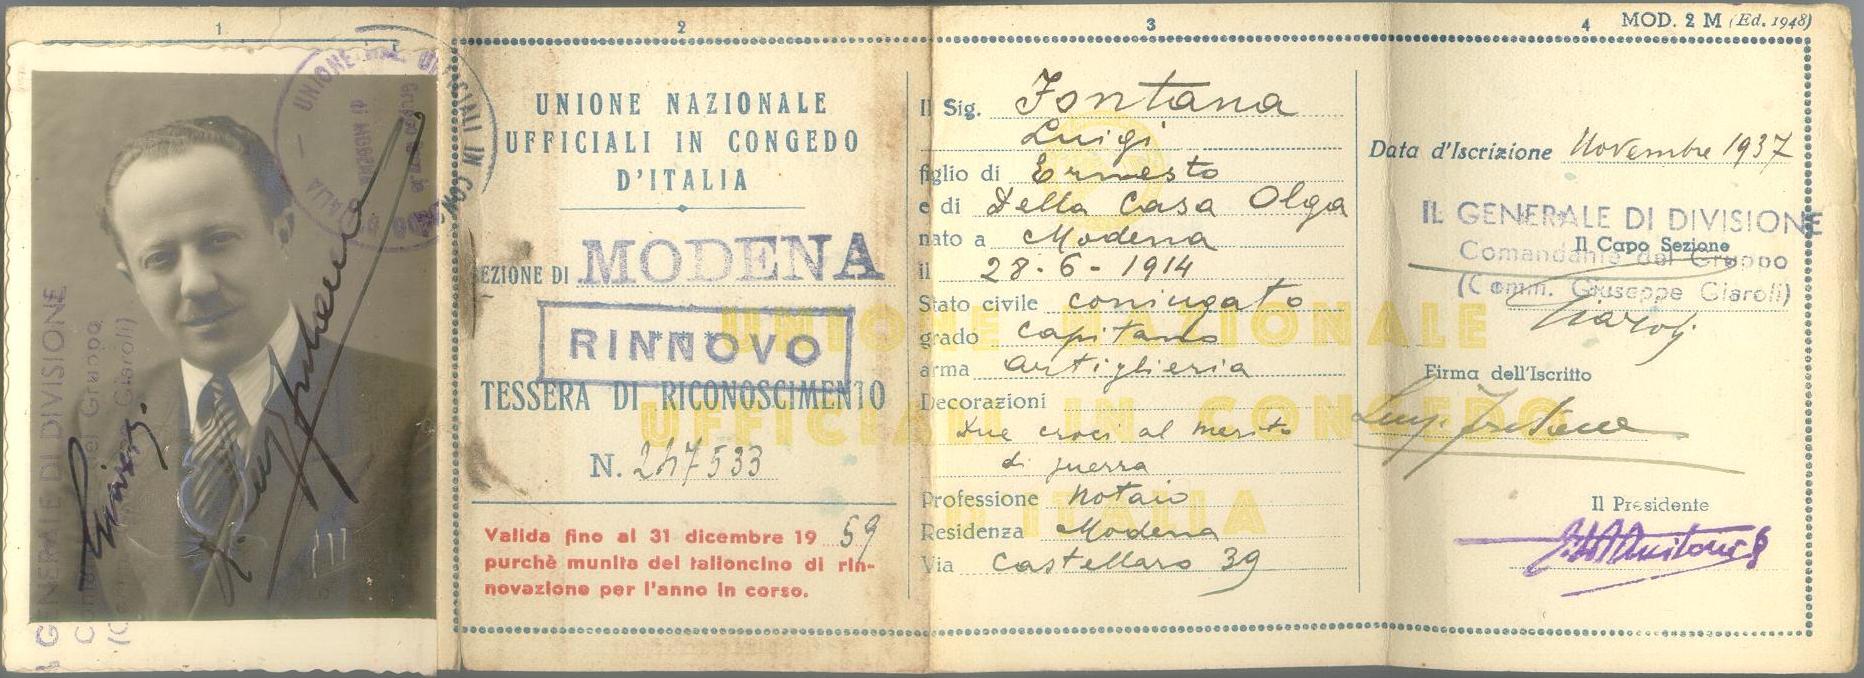 1
UNIONE NAZ. UFFICIALI IN CONGEDO
D'ITALIA
di MODENA
IL GENERALE DI DIVISIONE
2
UNIONE NAZIONALE
UFFICIALI IN CONGEDO
D'ITALIA
SEZIONE DI MODENA
RINNOVO
TESSERA DI RICONOSCIMENTO
N. 247533
Valida fino al 31 dicembre 19 59
purchè munita del talloncino di rin-
novazione per l'anno in corso.
3
Il Sig. Fontana
Luigi
figlio di Ernesto
e di Della Casa Olga
nato a Modena
il 28-6-1914
Stato civile coniugato
grado capitano
arma artiglieria
Decorazioni
Due croci al merito
di guerra
Professione notaio
Residenza Modena
Via Castellaro 39
UNIONE NAZIONALE
UFFICIALI IN CONGEDO
ITALIA
4
MOD. 2 M (Ed. 1948)
Data d'Iscrizione Novembre 1937
IL GENERALE DI DIVISIONE
Il Capo Sezione
Comandante del Gruppo
(Comm. Giuseppe Ciaroli)
Ciaroli
Firma dell'Iscritto
Luigi Fontana
Il Presidente